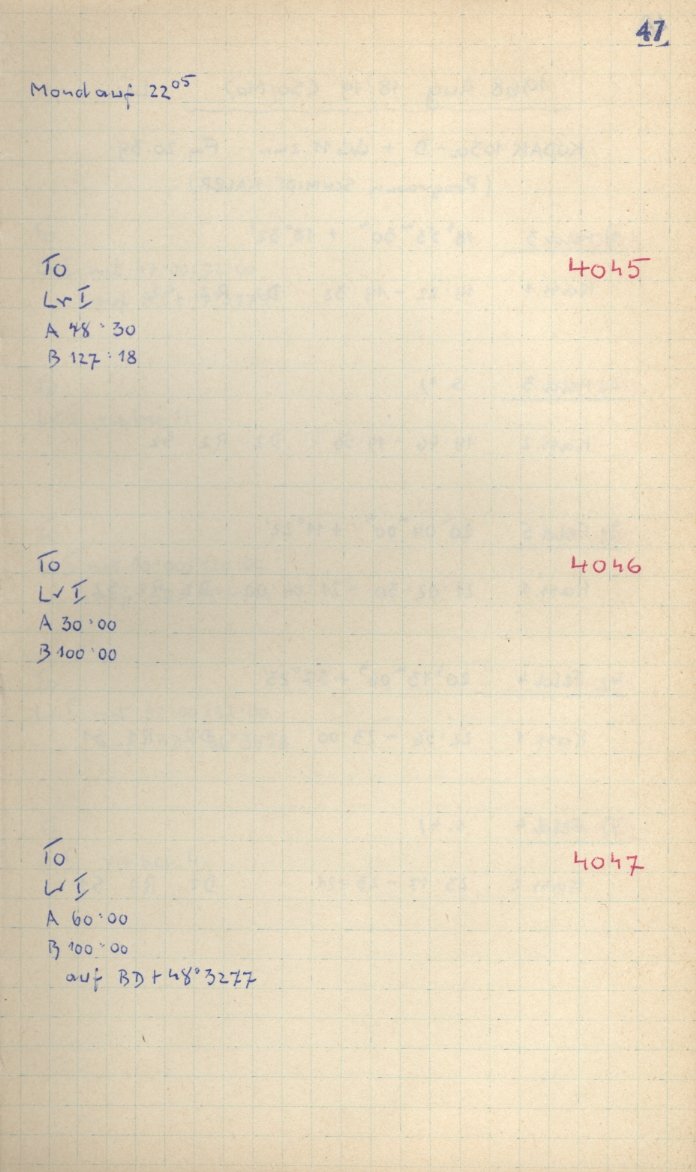 47
Mond auf 22⁰⁵
To 4045
Lv I
A 48:30
B 127:18
To 4046
Lv I
A 30:00
B 100:00
To 4047
Lv I
A 60:00
B 100:00
auf BD+48°3277